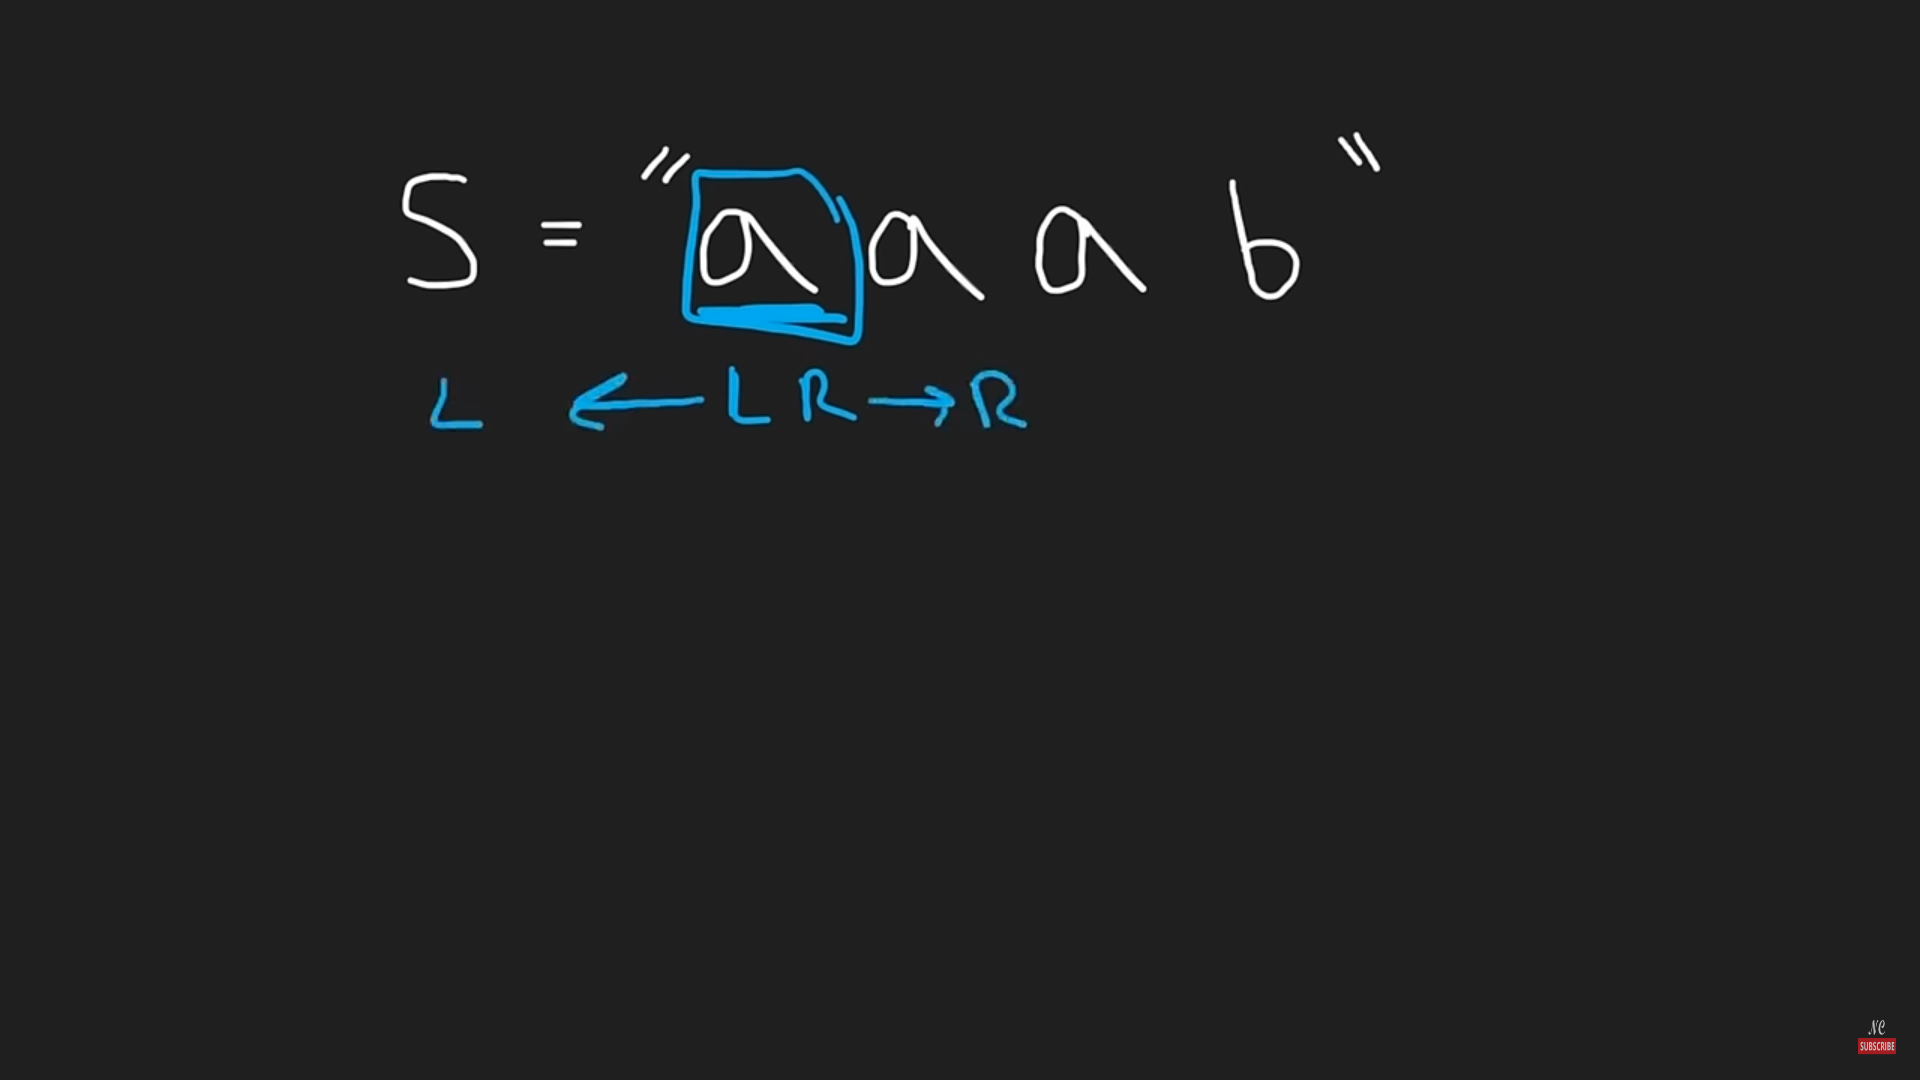 S = "a a a b"
L ← L R → R
NC
SUBSCRIBE